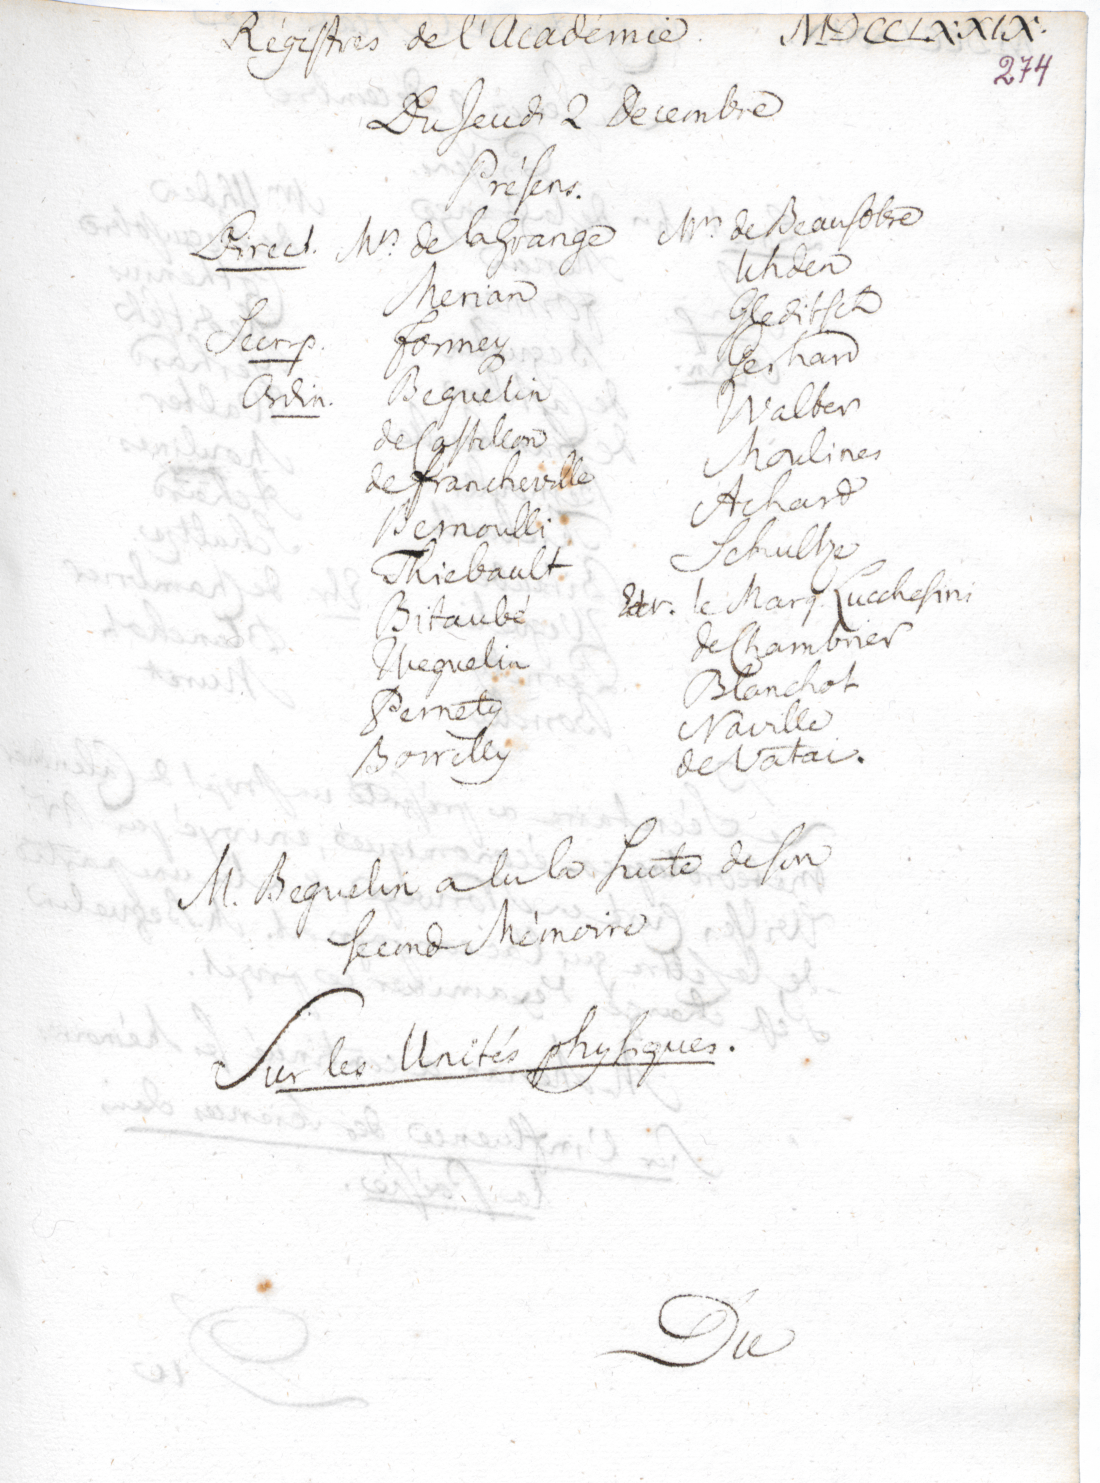 Régistres de l'Académie. MDCCLXXIX.
274
Du Jeudi 2 Decembre
Présens.
Direct. Mrs de la Grange
Merian
Secr. p. Formey
Ordin. Beguelin
de Castillon
de Francheville
Bernoulli
Thiebault
Bitaubé
Weguelin
Pernety
Borrelly
Mrs de Beausobre
Uhden
Gleditsch
Gerhard
Walter
Moulines
Achard
Schultze
Etr. le Marq. Lucchesini
de Chambrier
Blanchot
Naville
de Vatai.
M. Beguelin a lu la suite de son
second Mémoire
Sur les Unités physiques.
Du